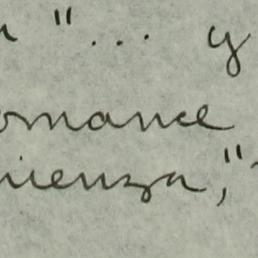 " ... y
omance
ienza,"